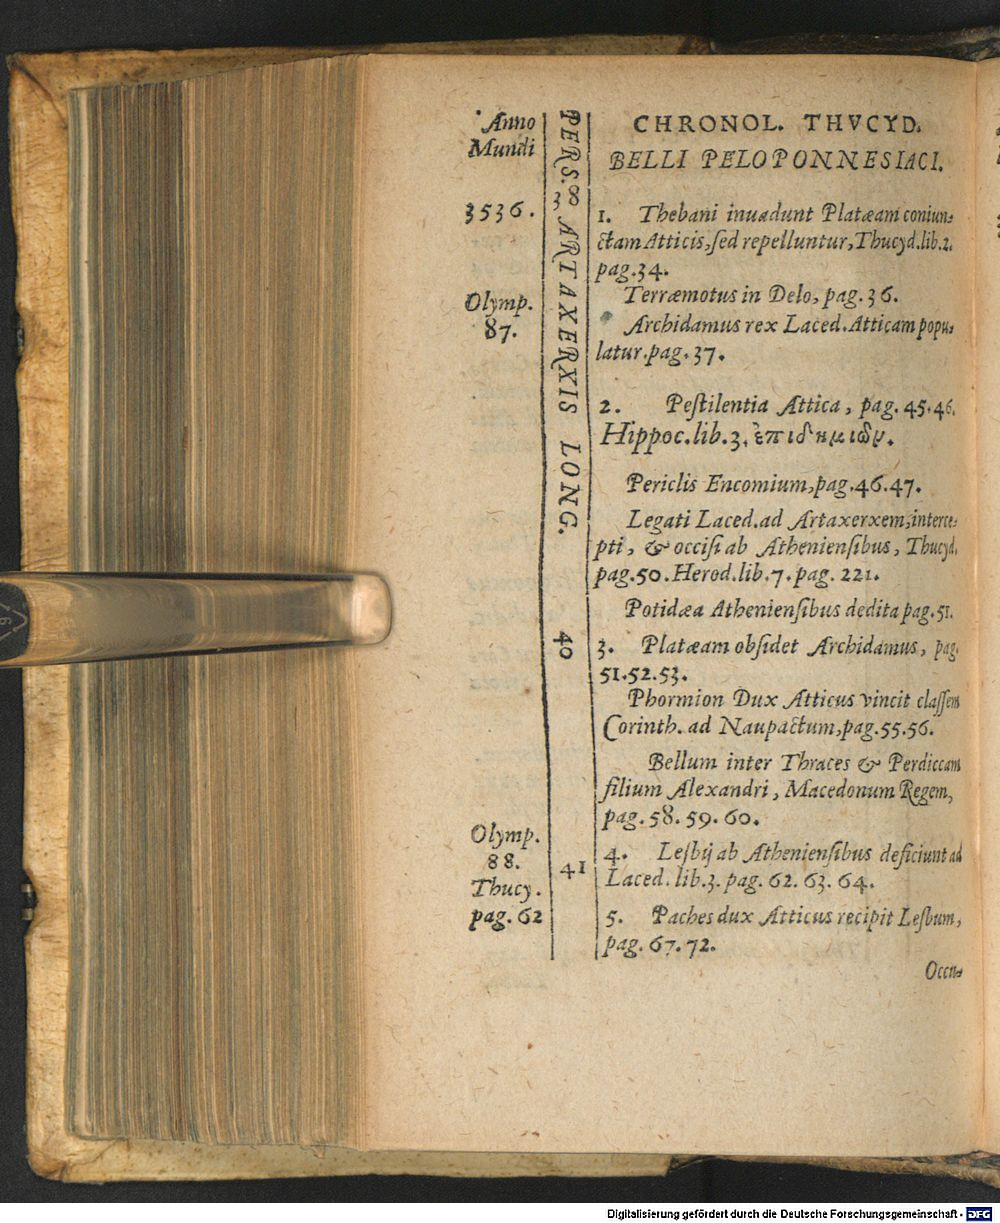 Anno
Mundi
3536.
Olymp.
87.
Olymp.
88.
Thucy.
pag. 62
PERS. 8 ARTAXERXIS LONG.
3
40
41
CHRONOL. THVCYD.
BELLI PELOPONNESIACI.
1. Thebani inuadunt Platæam coniun-
ctam Atticis, sed repelluntur, Thucyd. lib. 2.
pag. 34.
Terræmotus in Delo, pag. 36.
Archidamus rex Laced. Atticam popu-
latur. pag. 37.
2. Pestilentia Attica, pag. 45. 46.
Hippoc. lib. 3. ἐπιδημιῶν.
Periclis Encomium, pag. 46. 47.
Legati Laced. ad Artaxerxem, interce-
pti, & occisi ab Atheniensibus, Thucyd.
pag. 50. Herod. lib. 7. pag. 221.
Potidæa Atheniensibus dedita pag. 51.
3. Platæam obsidet Archidamus, pag.
51. 52. 53.
Phormion Dux Atticus vincit classem
Corinth. ad Naupactum, pag. 55. 56.
Bellum inter Thraces & Perdiccam
filium Alexandri, Macedonum Regem,
pag. 58. 59. 60.
4. Lesbij ab Atheniensibus deficiunt ad
Laced. lib. 3. pag. 62. 63. 64.
5. Paches dux Atticus recipit Lesbum,
pag. 67. 72.
Occu-
Digitalisierung gefördert durch die Deutsche Forschungsgemeinschaft - DFG